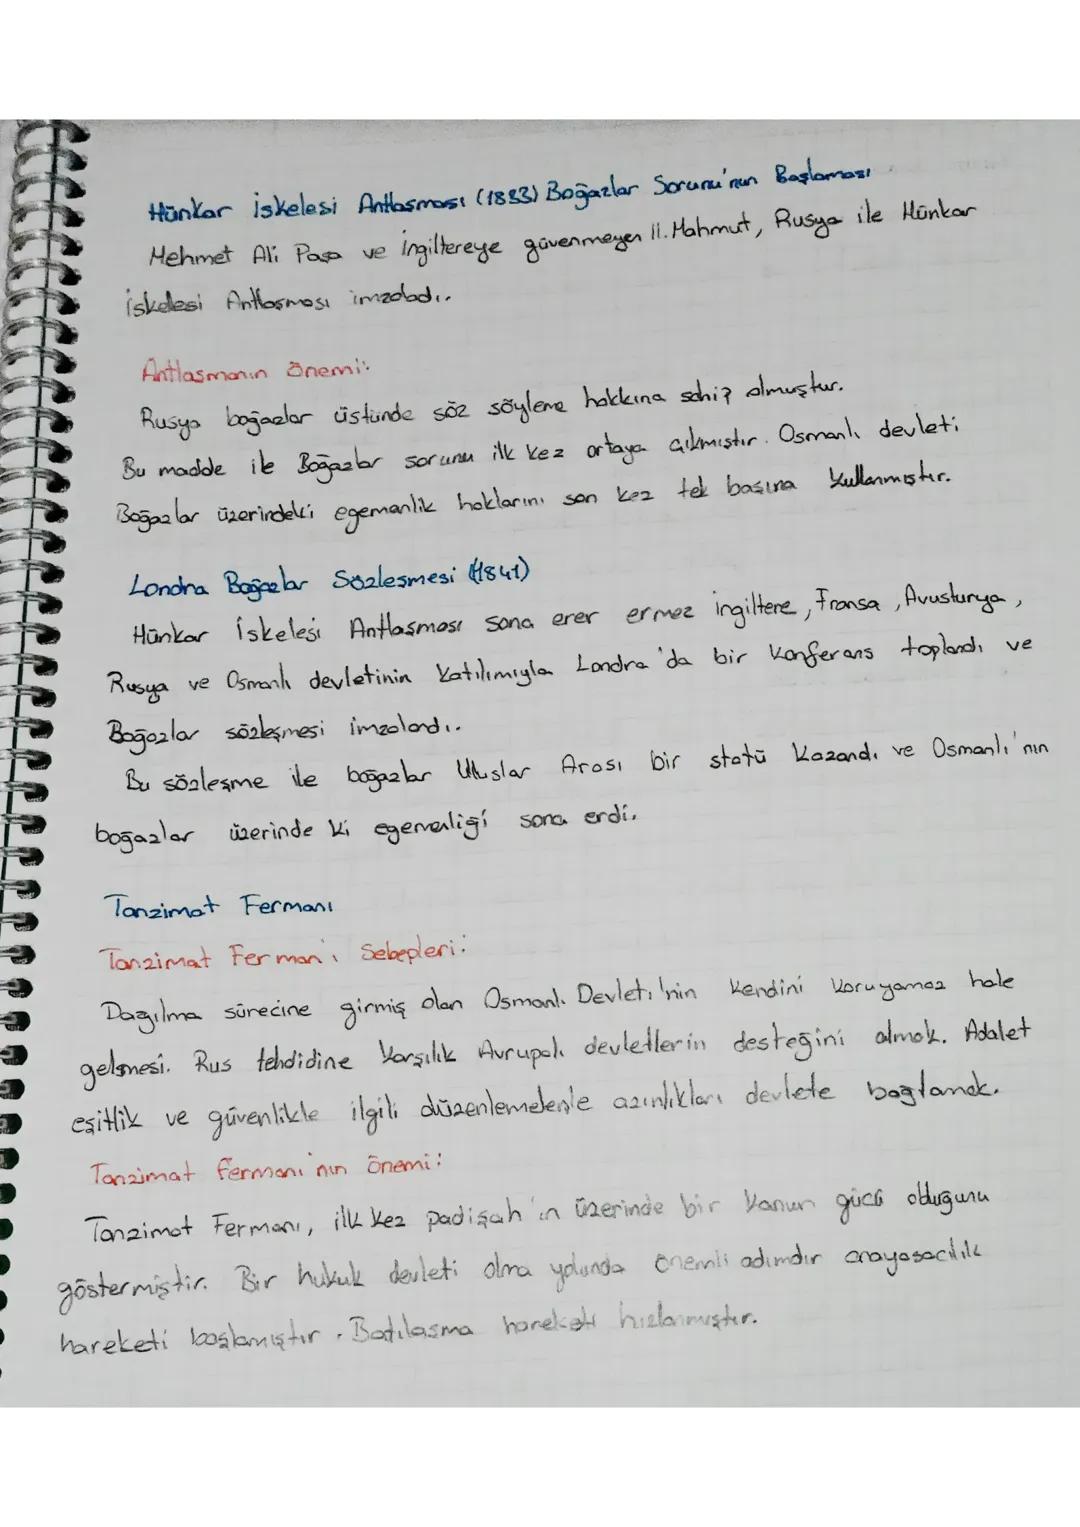 Hünkar İskelesi Antlaşması (1833) Boğazlar Sorunu'nun Başlaması
Mehmet Ali Paşa ve İngiltereye güvenmeyen II. Mahmut, Rusya ile Hünkar
İskelesi Antlaşması imzaladı.
Antlaşmanın Önemi:
Rusya boğazlar üstünde söz söyleme hakkına sahip olmuştur.
Bu madde ile Boğazlar sorunu ilk kez ortaya çıkmıştır. Osmanlı devleti
Boğazlar üzerindeki egemenlik haklarını son kez tek başına kullanmıştır.
Londra Boğazlar Sözleşmesi (1841)
Hünkar İskelesi Antlaşması sona erer ermez İngiltere, Fransa, Avusturya,
Rusya ve Osmanlı devletinin katılımıyla Londra'da bir konferans toplandı ve
Boğazlar sözleşmesi imzalandı.
Bu sözleşme ile boğazlar Uluslar Arası bir statü kazandı ve Osmanlı'nın
boğazlar üzerinde ki egemenliği sona erdi.
Tanzimat Fermanı
Tanzimat Ferman'ı Sebepleri:
Dağılma sürecine girmiş olan Osmanlı Devleti'nin kendini koruyamaz hale
gelmesi. Rus tehdidine karşılık Avrupalı devletlerin desteğini almak. Adalet
eşitlik ve güvenlikle ilgili düzenlemelerle azınlıkları devlete bağlamak.
Tanzimat Fermanı'nın Önemi:
Tanzimat Fermanı, ilk kez padişah'ın üzerinde bir kanun gücü olduğunu
göstermiştir. Bir hukuk devleti olma yolunda önemli adımdır anayasacılık
hareketi başlamıştır. Batılaşma hareketi hızlanmıştır.